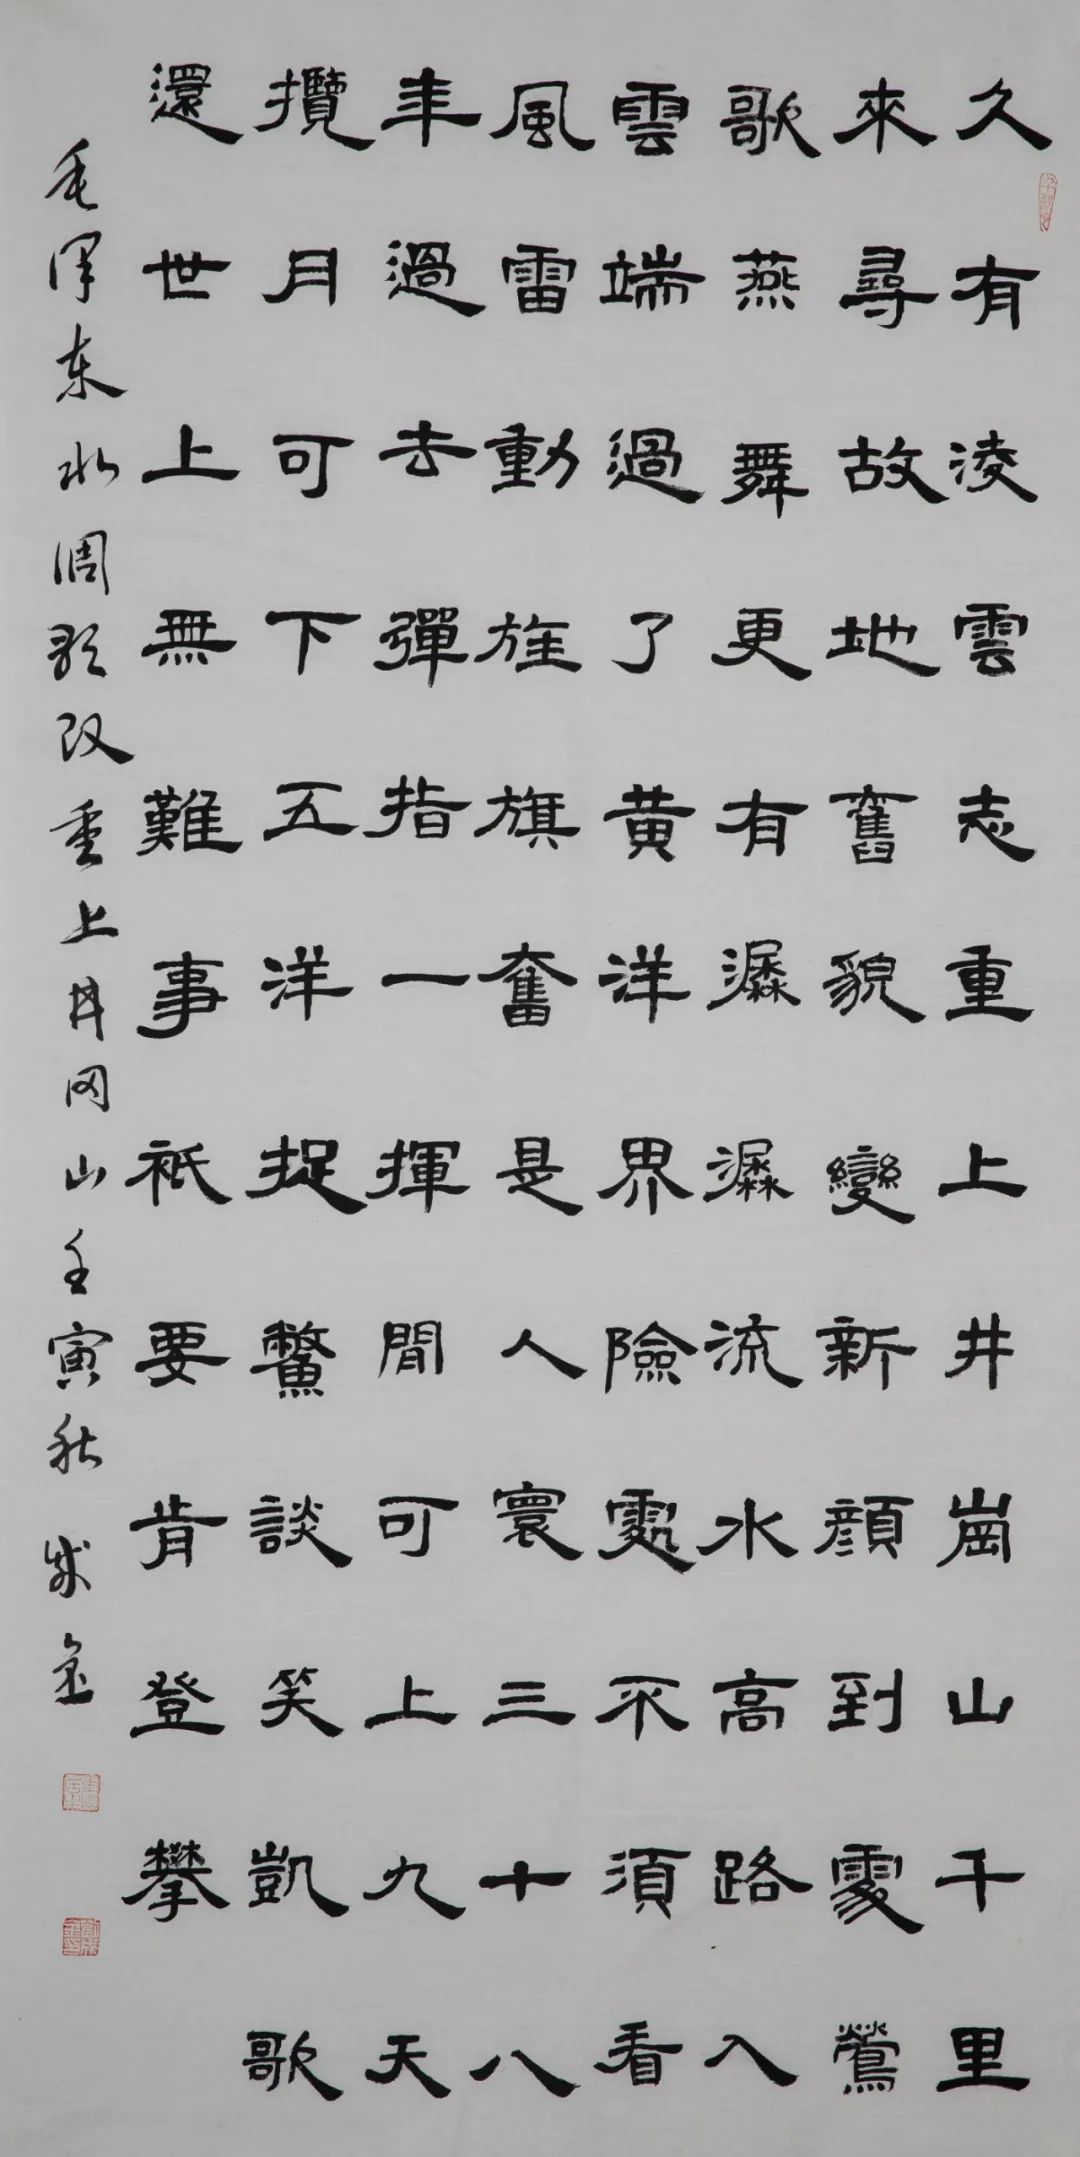 久有淩雲志重上井崗山千里
來尋故地舊貌變新顏到處鶯
歌燕舞更有潺潺流水高路入
雲端過了黃洋界險處不須看
風雷動旌旗奮是人寰三十八
年過去彈指一揮間可上九天
攬月可下五洋捉鱉談笑凱歌
還世上無難事衹要肯登攀
毛澤东水調歌头重上井冈山壬寅秋成金